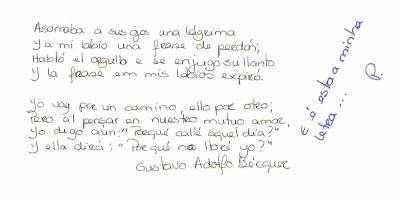 Asomaba a sus ojos una lágrima
Y a mi labio una frase de perdón;
Habló el orgullo e se enjugo su llanto
Y la frase em mis lábios expiró.
Yo voy por un camino, ello por otro;
Pero al pensar en nuestro mutuo amor,
Yo digo aún: "Porqué callé aquel dia?"
Y ella dirá: "Porqué no lloré yo?"
Gustavo Adolfo Bécquer
E é esta a minha
letra...
P.